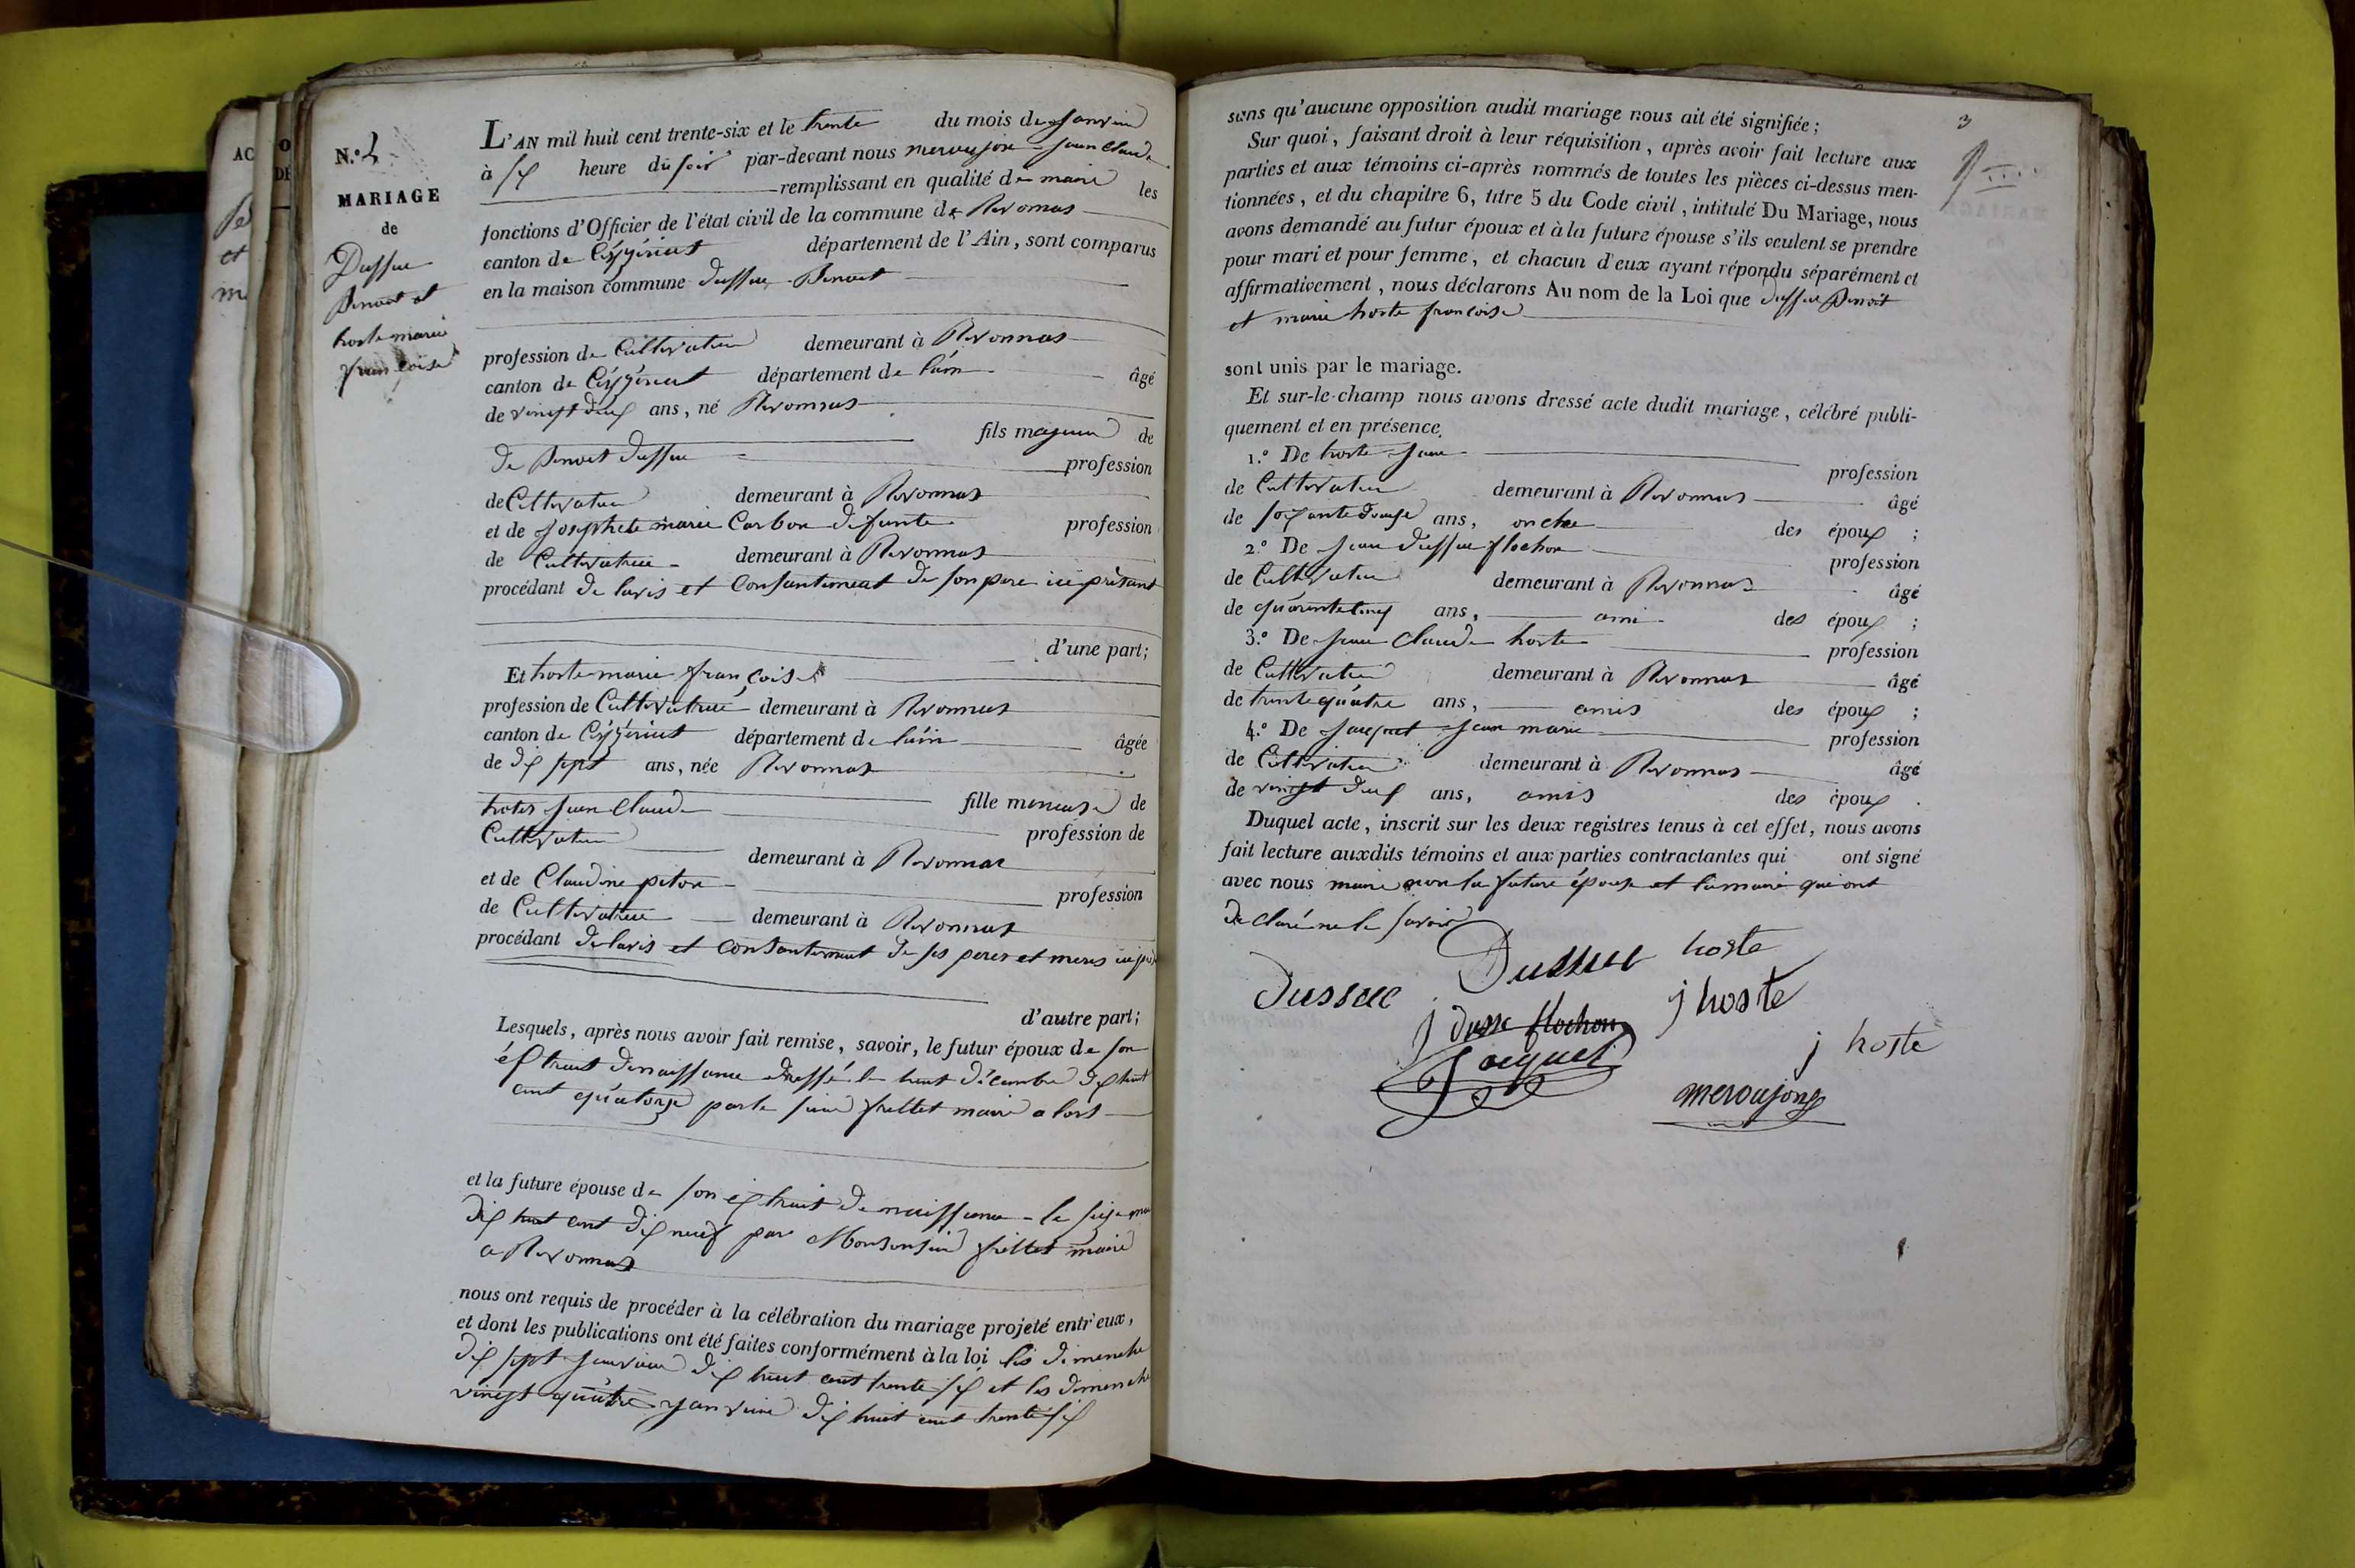 N.° 2
MARIAGE
de
Dussue
Benoit et
hoste marie
francoise
L'AN mil huit cent trente-six et le trente du mois de Janvier
à six heure du soir par-devant nous meroujon jean claude
remplissant en qualité de maire les
fonctions d'Officier de l'état civil de la commune de Revonnas
canton de Ceyzériat département de l'Ain, sont comparus
en la maison commune dussue Benoit
profession de Cultivateur demeurant à Revonnas
canton de Ceyzériat département de l'ain âgé
de vingt deux ans, né Revonnas
fils majeur de
de Benoit dussue profession
de Cltivateur demeurant à Revonnas
et de Josephete marie Carbon defunte profession
de Cultivatrice demeurant à Revonnas
procédant de lavis et Consantement de son pere ici présant
d'une part;
Et hoste marie françoise
profession de Cultivatrice demeurant à Revonnas
canton de Ceyzériat département de l'ain âgée
de dix sept ans, née Revonnas
fille meneuse de
hoter jean Claude profession de
Cultivateur demeurant à Revonnas
et de Claudine piton profession
de Cultivatrice demeurant à Revonnas
procédant de lavis et Consantement de ses peres et meres ici
d'autre part;
Lesquels, après nous avoir fait remise, savoir, le futur époux de son
extrait de naissance dressé le huit décembre dix huit
cent quatorze par le sieur frillet maire alors
et la future épouse de son extrait de naissance le
dix huit cent dix neuf par Monsensieur frillet maire
a Revonnas
nous ont requis de procéder à la célébration du mariage projeté entr'eux,
et dont les publications ont été faites conformément à la loi les dimenche
dix sept janvier dix huit cent trente six et les dimenche
vingt quatre janvier dix huit cent trente six
3
sans qu'aucune opposition audit mariage nous ait été signifiée;
Sur quoi, faisant droit à leur réquisition, après avoir fait lecture aux
parties et aux témoins ci-après nommés de toutes les pièces ci-dessus men-
tionnées, et du chapitre 6, titre 5 du Code civil, intitulé Du Mariage, nous
avons demandé au futur époux et à la future épouse s'ils veulent se prendre
pour mari et pour femme, et chacun d'eux ayant répondu séparément et
affirmativement, nous déclarons Au nom de la Loi que dussue Benoit
et marie hoste francoise
sont unis par le mariage.
Et sur-le-champ nous avons dressé acte dudit mariage, célébré publi-
quement et en présence,
1.° De hoste jean profession
de Cultivateur demeurant à Revonnas âgé
de soixante douze ans, oncle des époux ;
2.° De jean dussue flochon profession
de Cultivateur demeurant à Revonnas âgé
de quarante cinq ans, ami des époux ;
3.° De jean Claude hoste profession
de Cultivateur demeurant à Revonnas âgé
de trente quatre ans, amis des époux ;
4.° De jacquet jean marie profession
de Cultivateur demeurant à Revonnas âgé
de vingt deux ans, amis des époux .
Duquel acte, inscrit sur les deux registres tenus à cet effet, nous avons
fait lecture auxdits témoins et aux parties contractantes qui ont signé
avec nous maire non la future épouse et qui ont
declaré ne le savoir
Dussue hoste
Dussue j hoste
J Dusse flochon
Jacquet j hoste
meroujong